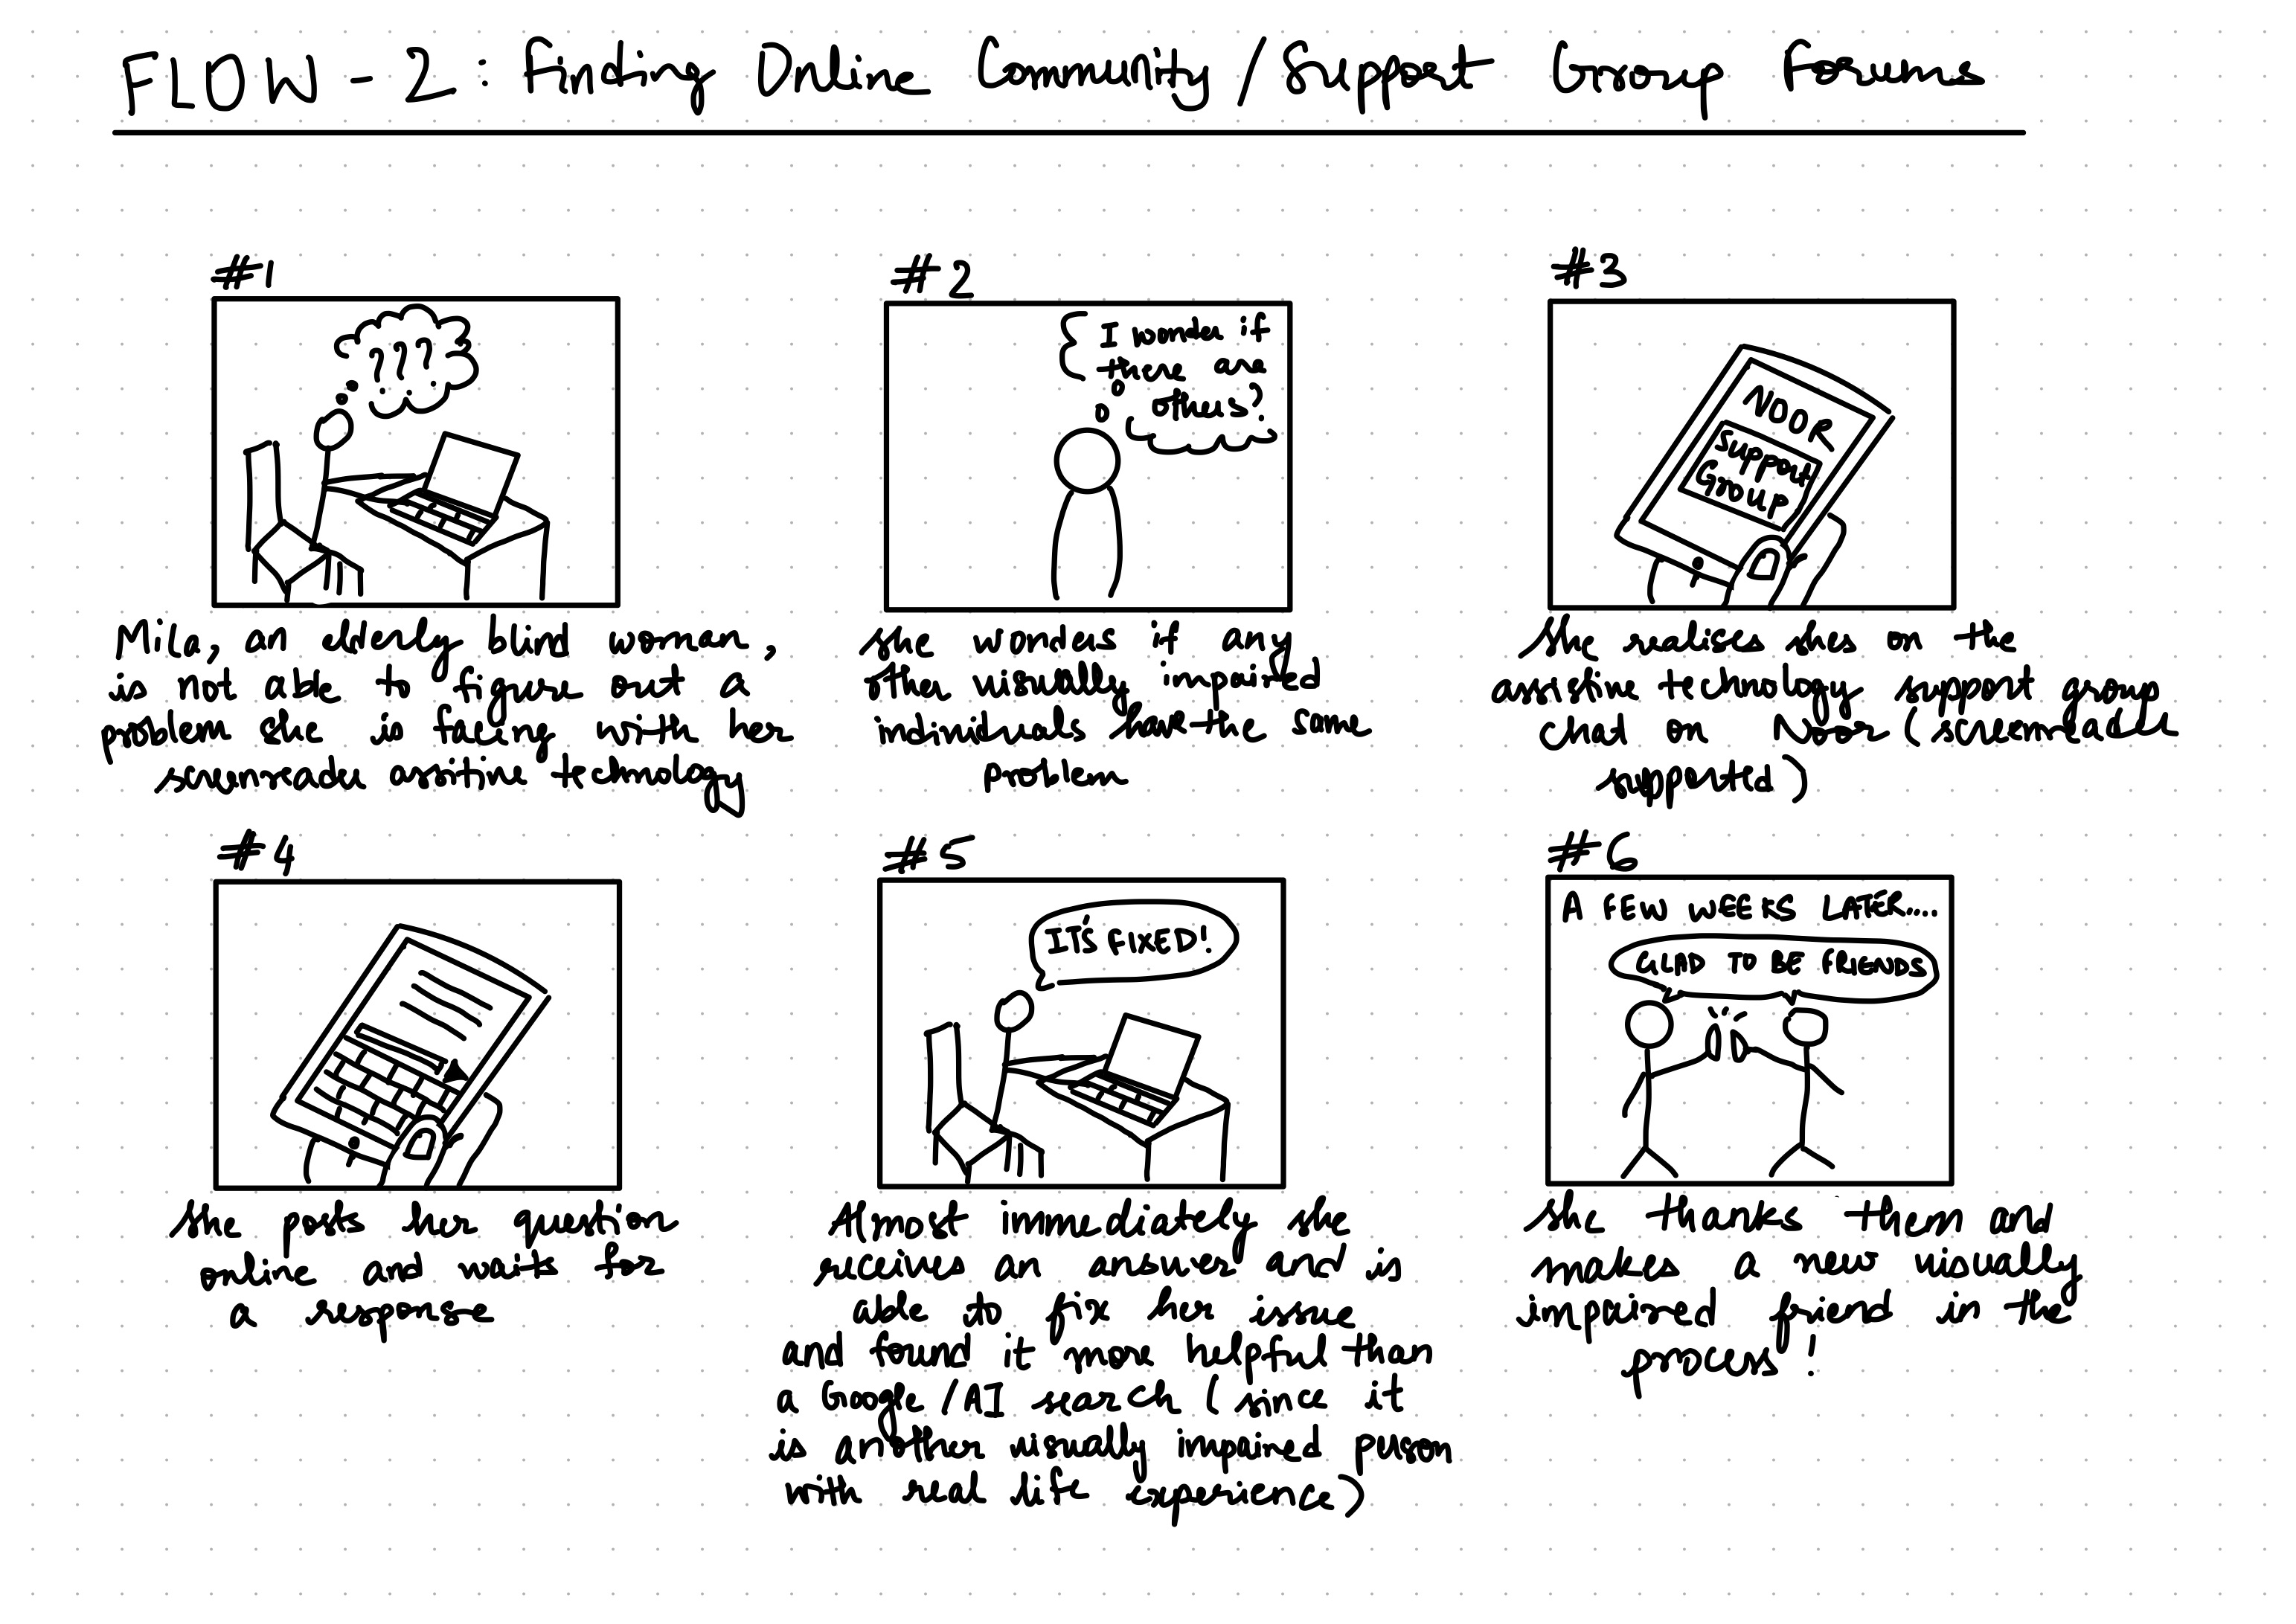 FLOW - 2 : Finding Online Community/Support Group Forums
#1
? ? ?
Mila, an elderly blind woman,
is not able to figure out a
problem she is facing with her
screenreader assitive technology
#2
I wonder if
there are
others?
she wonders if any
other visually impaired
individuals have the same
problem
#3
NOOR
Support
Group
She realises shes on the
assistive technology support group
chat on Noor (screenreader
supported)
#4
She posts her question
online and waits for
a response
#5
IT'S FIXED!
Almost immediately she
receives an answer and is
able to fix her issue
and found it more helpful than
a Google/AI search (since it
is another visually impaired person
with real life experience)
#6
A FEW WEEKS LATER....
GLAD TO BE FRIENDS
She thanks them and
makes a new visually
impaired friend in the
process!